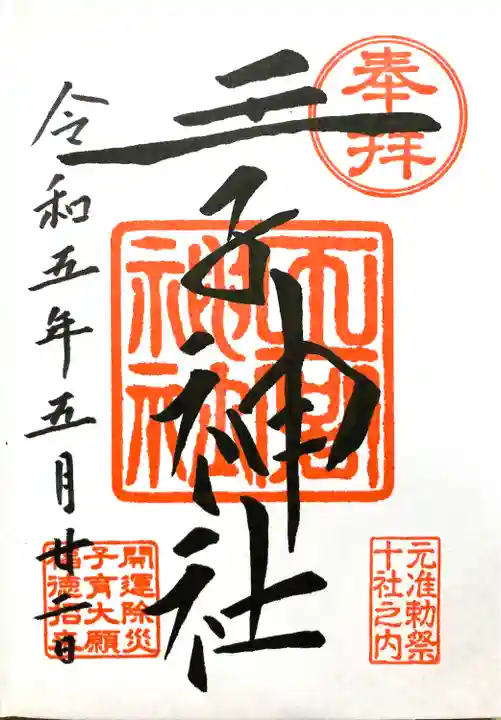 奉拝
王子神社
神社
元准勅祭
十社之内
開運除災
子育大願
令和五年五月廿二日